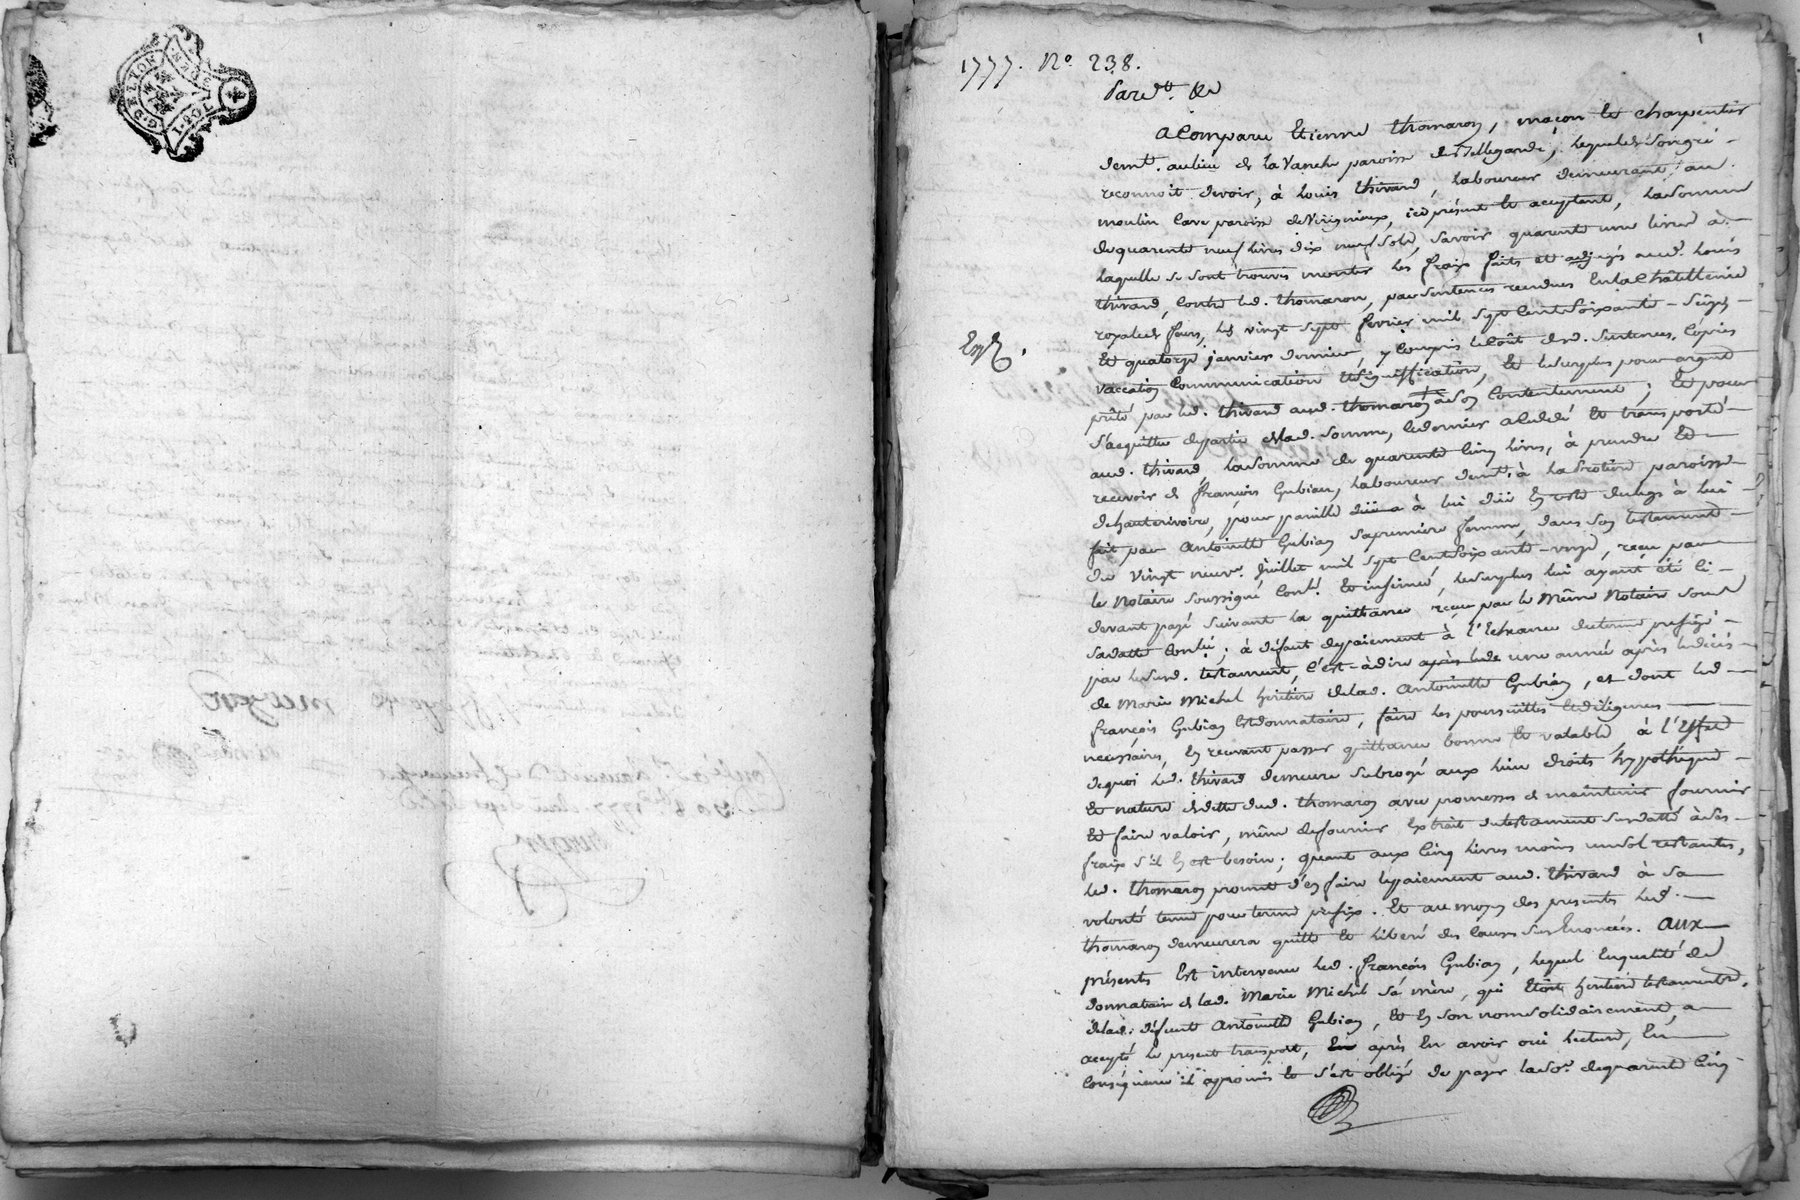 G.D. DE LYON
1777. No. 238.
Pardt. &a
a Comparu Etienne thomaron, maçon Et charpentier
demt. au lieu de la Vanche paroisse de Bellegarde, lequel de Son gré
reconnoit devoir, à Louis thivard, laboureur demeurant au
moulin Cave paroisse de Virignieux, icÿ présent Et acceptant, la Somme
de quarente neuf livres dix neuf Sols, Savoir quarente une livres à
laquelle se sont trouvés monter les fraix faits et adjugés aud. Louis
thivard, Contre led. thomaron, par Sentences rendues En la Châtellenie
royale de feurs, les vingt Sept fevrier mil Sept Cent Soixante - Seize
Et quatorze janvier dernier, y Compris le Coût desd. Sentences, Copies
Exp.
vaccation Communication Et Signiffication, Et le Surplus pour argent
prêté par led. thivard aud. thomaron à Son Contentement; Et pour
S'acquitter de partie de lad. Somme, Ce dernier a Cédé Et transporté
aud. thivard la Somme de quarente Cinq livres, à prendre Et
recevoir de françois Gubian, laboureur demt. à paroisse
d'hauterivoire, pour pareille düe à lui düe En reste du legs à lui
fait par Antoinette Gubian Sa premiere femme, dans Son testament
du vingt neuve. Juillet mil Sept Cent Soixante - onze, reçu par
le Notaire Soussigné Conlé. Et insinué, le Surplus lui ayant été Ci-
devant payé Suivant la quittance reçue par le Même Notaire Sous
Sa datte Conlée; à défaut de paiement à l'Echeance du terme prefigé
par le Susd. testament, C'est-à-dire après une année après le décés
de Marie Michel héritière de lad. Antoinette Gubian, et dont led.
françois Gubian Est donnataire, faire les poursuittes Et diligences
necessaires, En recevant passer quittance bonne Et valable, à l'Effet
de quoi led. thivard demeure Subrogé aux lieu droits hypothéque
Et nature de dette dud. thomaron avec promesses de maintenir fournir
Et faire valoir, même de fournir Extrait du testament Sus datté à Ses
fraix S'il En est besoin; quant aux Cinq livres moins un Sol restantes,
led. thomaron promet d'En faire le paiement aud. thivard à Sa
volonté terme pour terme prefix. Et au moyen des presentes led.
thomaron demeurera quitte Et liberé des Causes Sus Enoncées. aux
présentes Est intervenu led. françois Gubian, lequel En qualité de
donnataire de lad. Marie Michel Sa mère, qui Etoit héritière testamentre.
de lad. défunte Antoinette Gubian, Et En Son nom Solidairement, a
accepté le present transport, après En avoir oui lecture, En
Conséquence il a promis Et S'est obligé de payer la Soe. de quarente Cinq